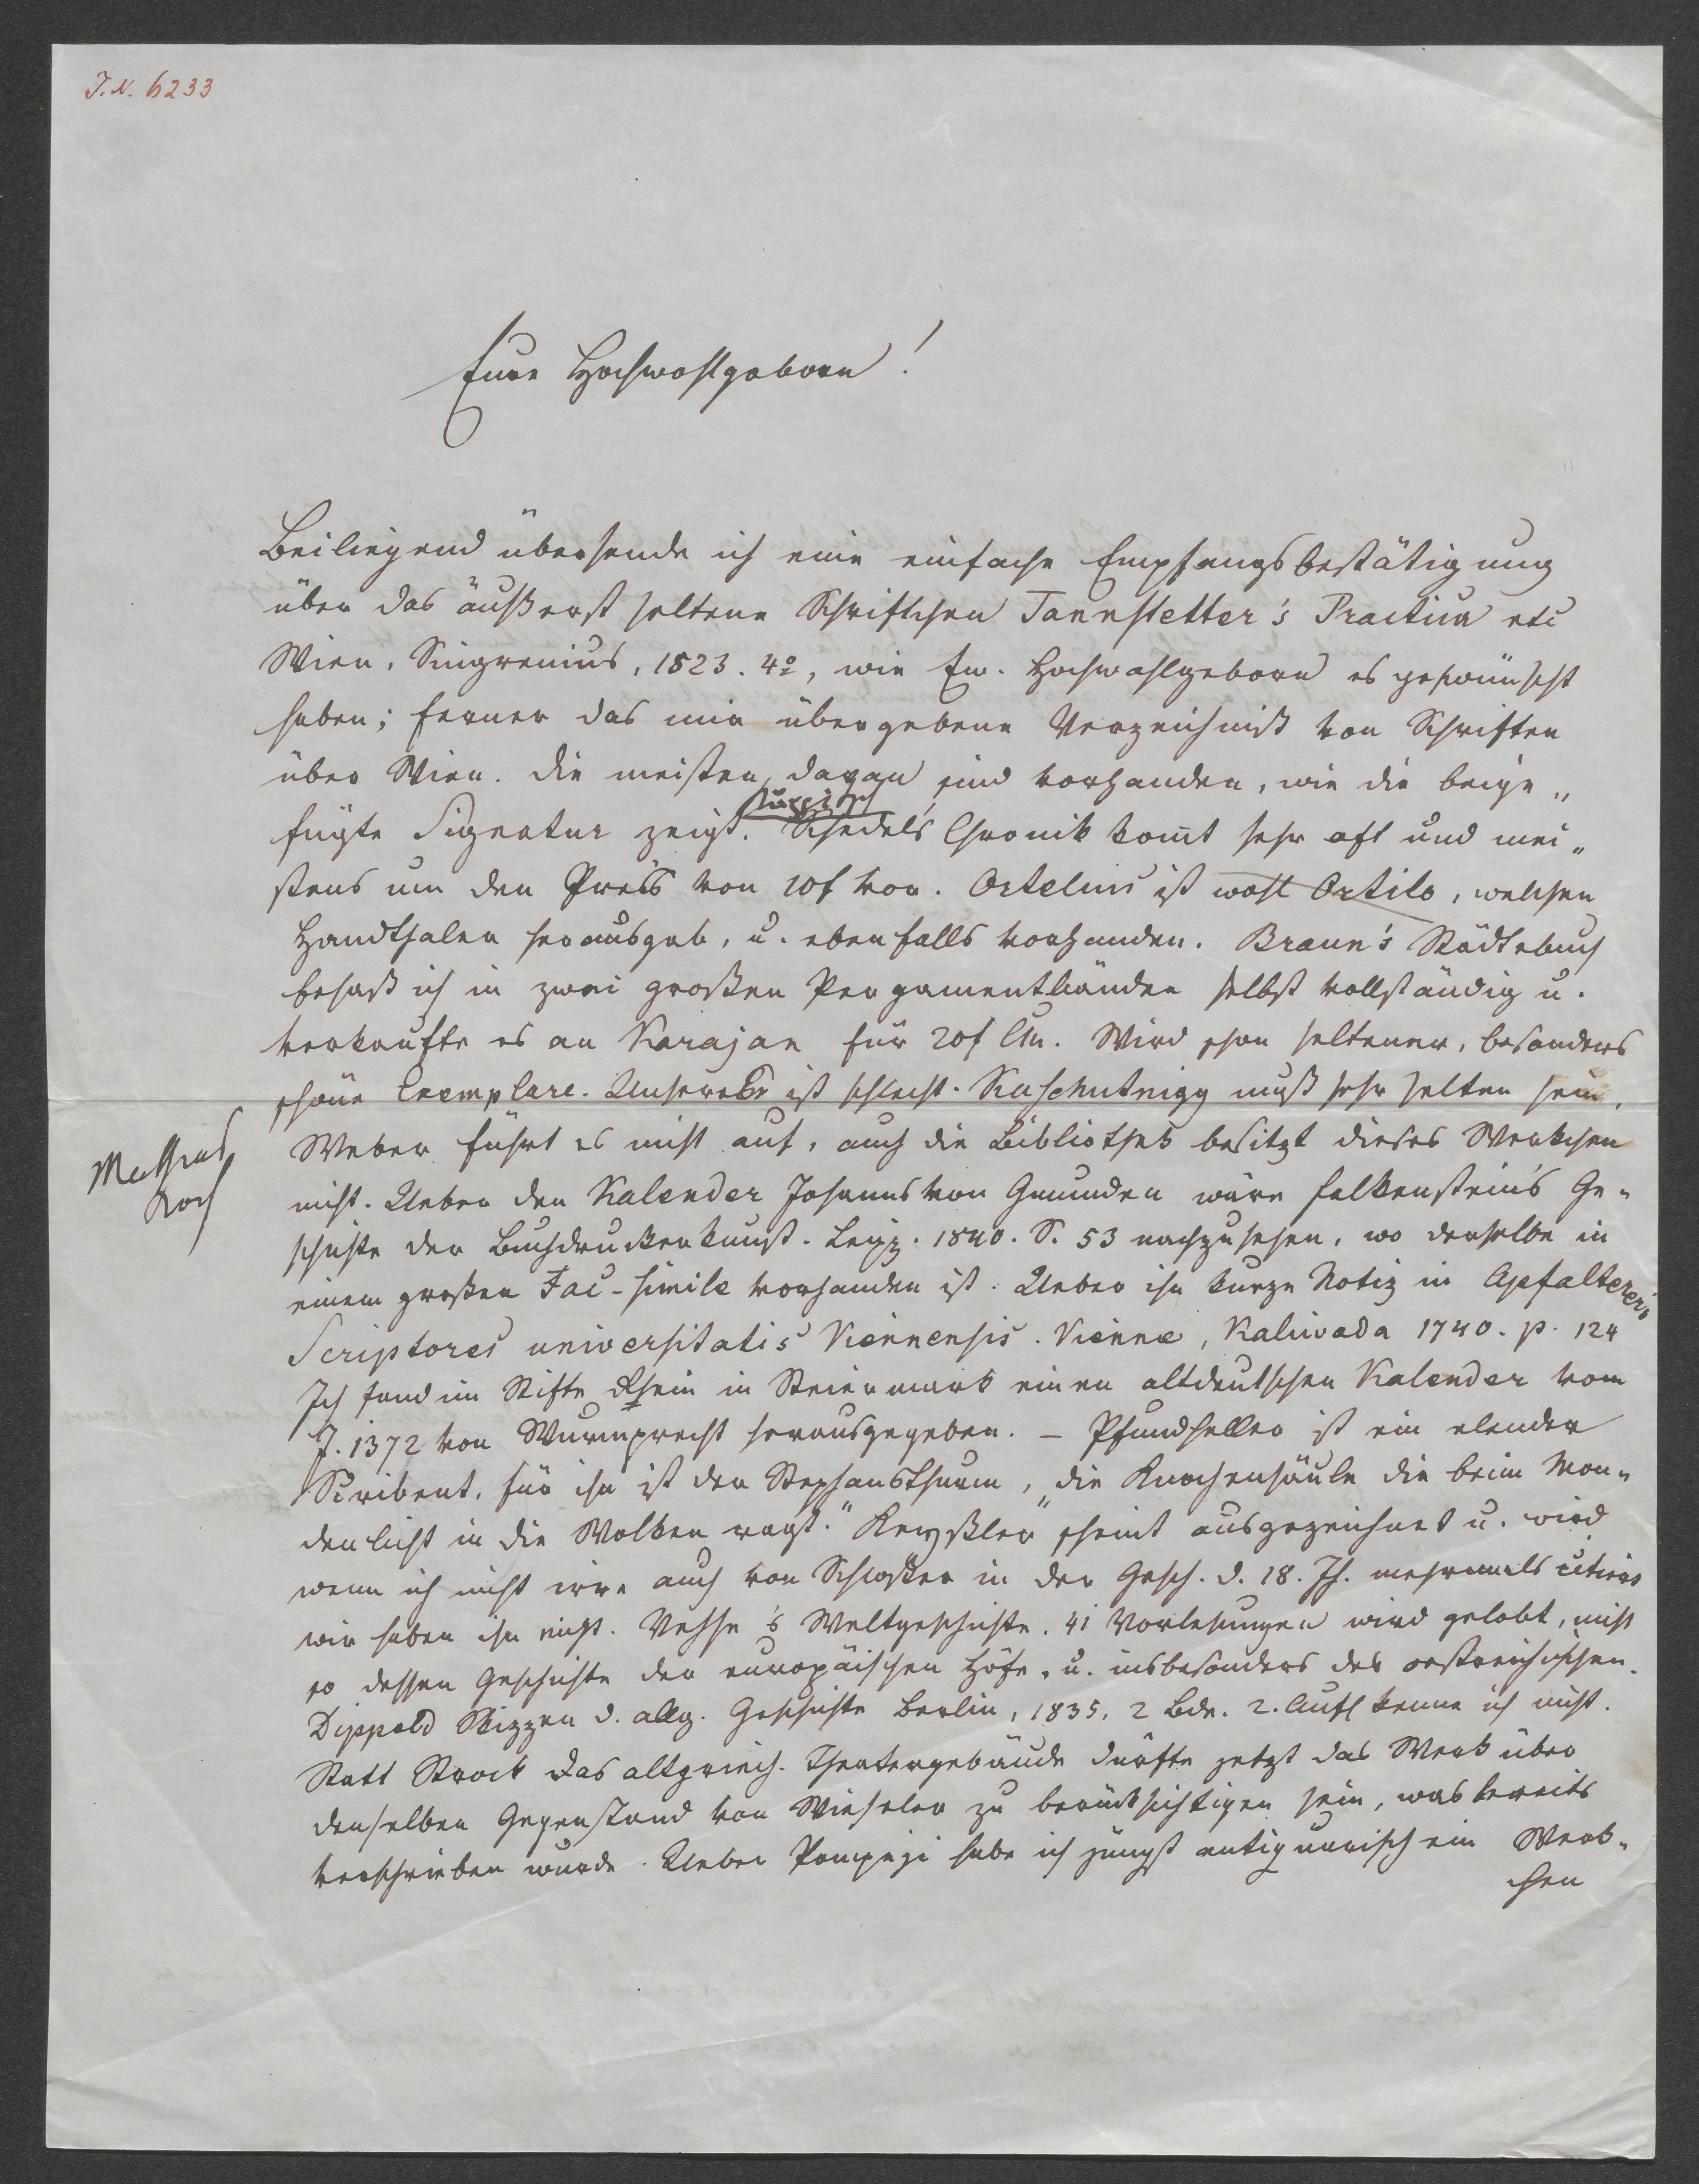 I. N. 6233
Eure Hochwohlgeboren!
Beiliegend übersende ich eine einfache Empfangsbestätigung
über das äußerst seltene Schriftchen Tannstetter's Practica etc
Wien, Singrenius, 1523. 4º, wie Ew. Hochwohlgeboren es gewünscht
haben; ferner das mir übergebene Verzeichniß von Schriften
über Wien. Die meisten davon sind vorhanden, wie die beige„
fügte Signatur zeigt. Schedels Chronik komt sehr oft und mei„
stens um den Preis von 10f vor. Ortelius ist wohl Ortilo, welchen
Hanthaler herausgab, u. ebenfalls vorhanden. Braun's Städtebuch
besaß ich in zwei großen Pergamentbänden selbst vollständig u.
verkaufte es an Karajan für 20f CM. Wird schon seltener, besonders
schöne Exemplare. Unseres ist schlecht. Kaschutnigg muß sehr selten sein,
Mathias
Koch
Weber führt es nicht auf, auch die Bibliothek besitzt dieses Werkchen
nicht. Ueber den Kalender Johanns von Gmunden wäre Falkenstein's Ge„
schichte der Buchdruckerkunst. Leipz. 1840. S. 53 nachzusehen, wo derselbe in
einem großen Fac-simile vorhanden ist. Ueber ihn kurze Notiz in Apfalterer's
Scriptores universitatis Viennensis. Viennæ, Kaliwoda 1740. p. 124
Ich fand im Stifte Rhein in Steiermark einen altdeutschen Kalender vom
J. 1372 von Wurmprecht herausgegeben. – Pfundheller ist ein elender
Scribent, für ihn ist der Stephansthurm, „die Knochensäule die beim Mon„
denlicht in die Wolken ragt." Keyßler scheint ausgezeichnet u. wird
wenn ich nicht irre auch von Schlosser in der Gesch. d. 18. Jh. mehrmals citirt
wir haben ihn nicht. Vehse's Weltgeschichte. 41 Vorlesungen wird gelobt, nicht
so dessen Geschichte der europäischen Höfe, u. insbesonders des oestreichischen.
Dippold Skizzen d. allg. Geschichte Berlin, 1835, 2 Bde. 2. Aufl kenne ich nicht.
Statt Strack das altgriech. Theatergebäude dürfte jetzt das Werk über
denselben Gegenstand von Wieseler zu berücksichtigen sein, was bereits
verschrieben wurde. Ueber Pompeji habe ich jüngst antiquarisch ein Werk„
chen